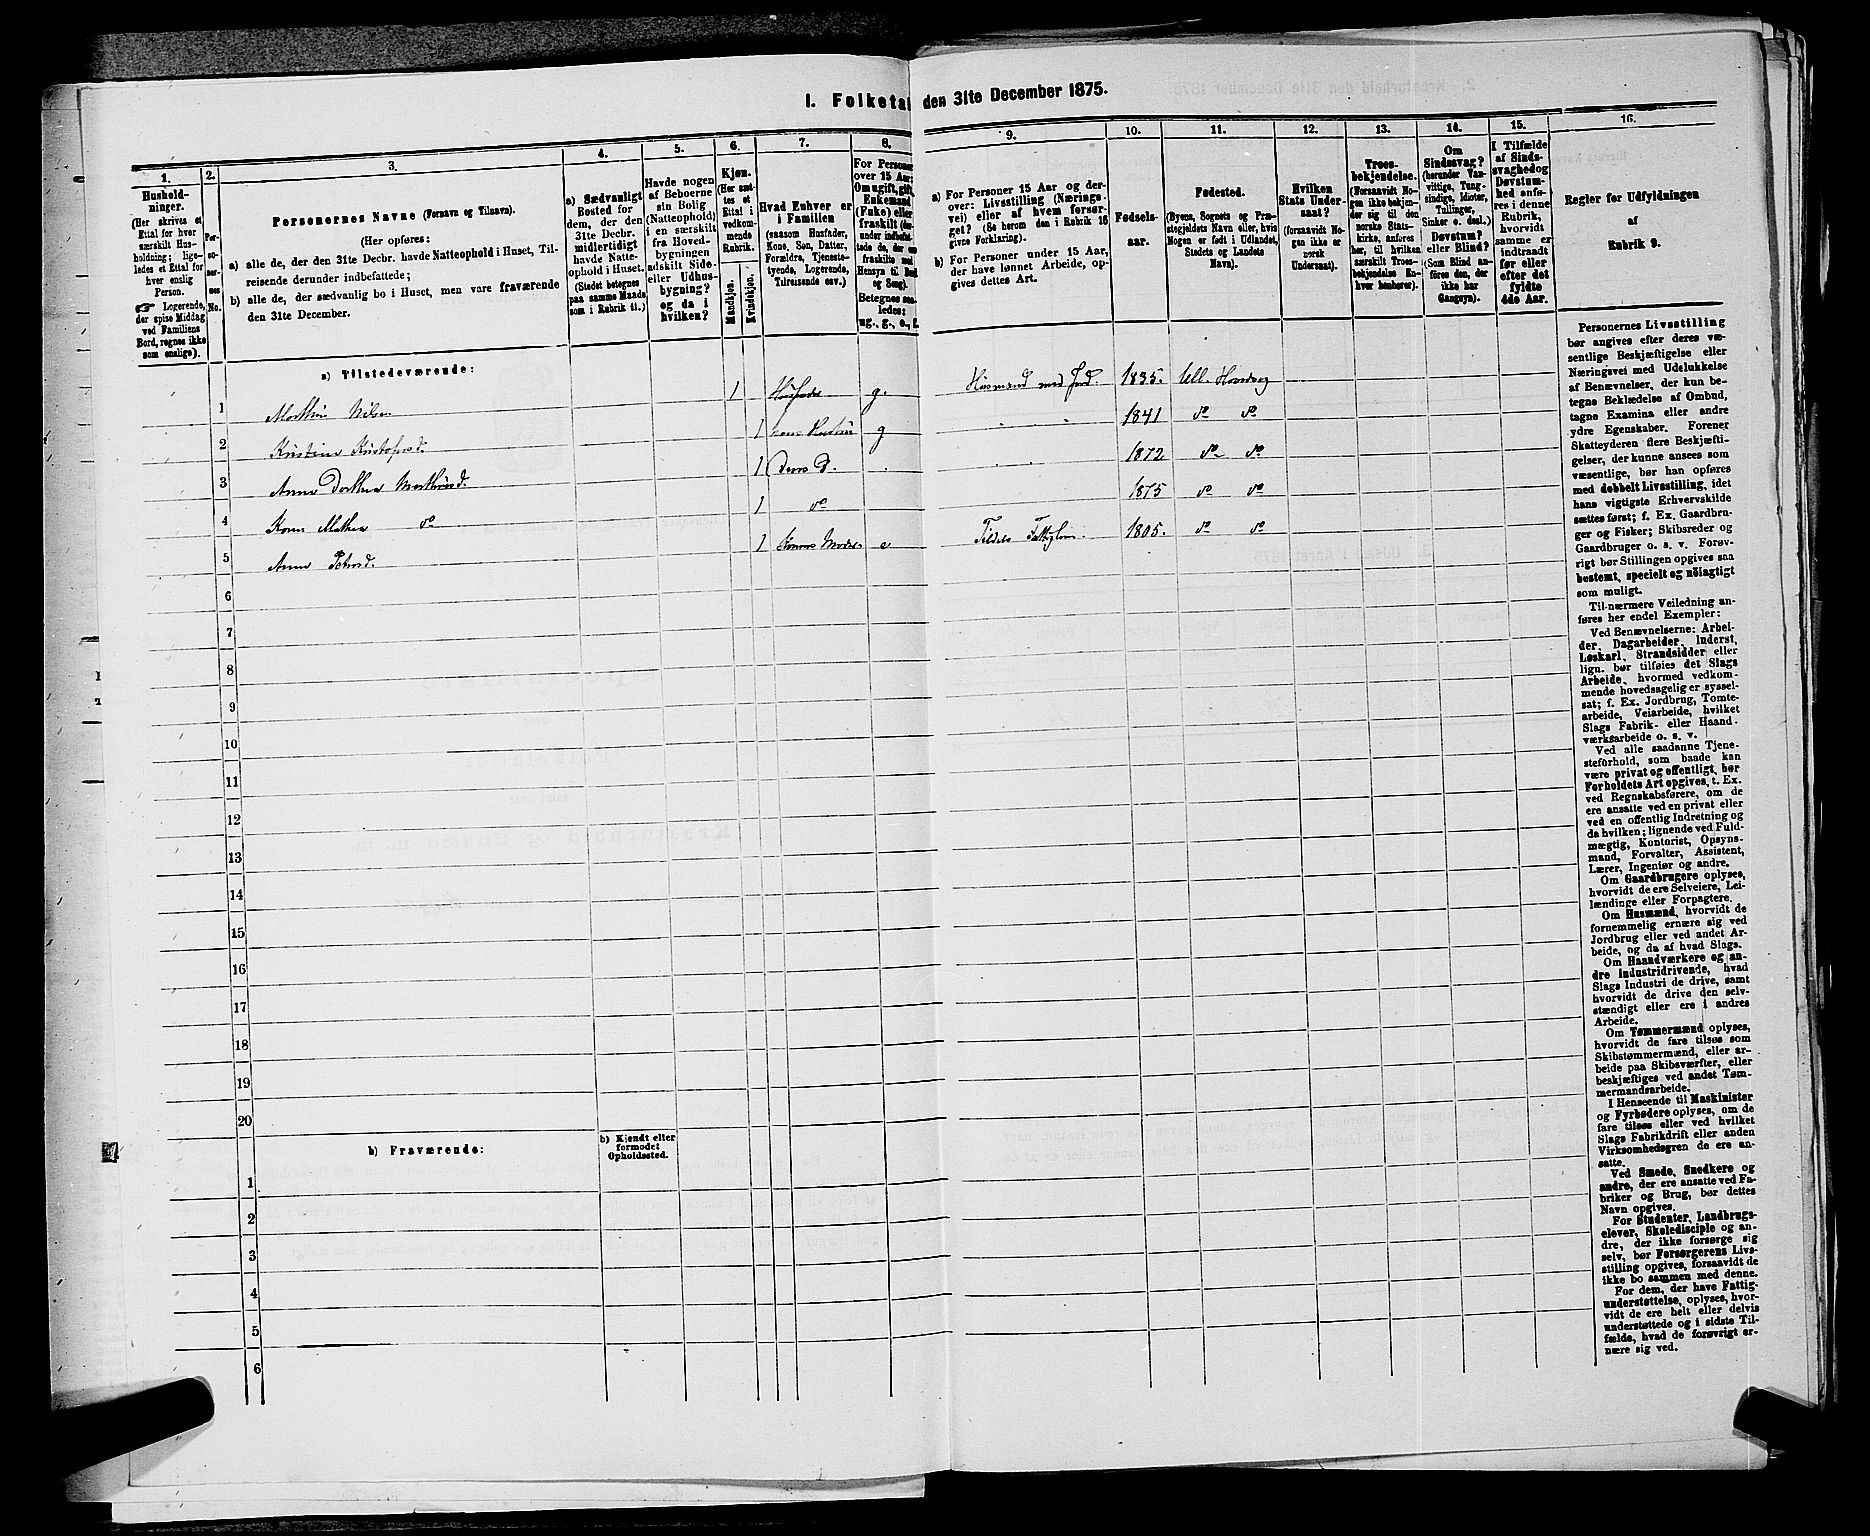 I. Folketal den 31te December 1875.
1.
Hushold-
ninger.
(Her skrives et
Ettal for hver
særskilt Hus-
holdning; lige-
ledes et Ettal for
hver enslig
Person.
☞ Logerende,
der spise Middag
ved Familiens
Bord, regnes ikke
som enslige).
2.
Per-
so-
ner-
nes
No.
3.
Personernes Navne (Fornavn og Tilnavn).
(Her opføres:
a) alle de, der den 31te Decbr. havde Natteophold i Huset, Til-
reisende derunder indbefattede;
b) alle de, der sædvanlig bo i Huset, men vare fraværende
den 31te December.
4.
a) Sædvanligt
Bosted for
dem, der den
31te Decbr.
midlertidigt
havde Natte-
ophold i Huset.
(Stedet betegnes
paa samme Maade
som i Rubrik 11.)
5.
Havde nogen
af Beboerne
sin Bolig
(Natteophold)
i en særskilt
fra Hoved-
bygningen
adskilt Side-
eller Udhus-
bygning?
og da i
hvilken?
6.
Kjøn.
(Her sæt-
tes et
Ettal i
vedkom-
mende
Rubrik.
Mandkjøn.
Kvindekjøn.
7.
Hvad Enhver er
i Familien
(saasom Husfader,
Kone, Søn, Datter,
Forældre, Tjeneste-
tyende, Logerende,
Tilreisende osv.)
8.
For Personer
over 15 Aar:
Om ugift, gift,
Enkemand
(Enke) eller
fraskilt
Betegnes saa-
ledes:
ug., g., e., f.
9.
a) For Personer 15 Aar og der-
over: Livsstilling (Nærings-
vei) eller af hvem forsør-
get? (Se herom den i Rubrik 16
givne Forklaring).
b) For Personer under 15 Aar,
der have lønnet Arbeide, op-
gives dettes Art.
10.
Fødsels-
aar.
11.
Fødested.
(Byens, Sognets og Præ-
stegjeldets Navn eller, hvis
Nogen er født i Udlandet,
Stedets og Landets
Navn).
12.
Hvilken
Stats Under-
saat?
(forsaavidt No-
gen ikke er
norsk
Undersaat).
13.
Troes-
bekjendelse.
(Forsaavidt No-
gen ikke bekjen-
der sig til den
norske Stats-
kirke, anføres
her, til hvilken
særskilt Troes-
bekjendelse En-
hver henhører).
14.
Om
Sindssvag?
(herunder Van-
vittige, Tung-
sindige, Idioter,
Tullinger,
Sinker o. desl.)
Døvstum?
eller Blind?
(Som Blind an-
føres den, der
ikke har
Gangsyn).
15.
I Tilfælde
af Sinds-
svaghed og
Døvstum-
hed anfø-
res i denne
Rubrik,
hvorvidt
samme er
indtraadt
før eller
efter det
fyldte
4de Aar.
16.
Regler for Udfyldningen
af
Rubrik 9.
a) Tilstedeværende:
1 Mathias Nilsen 1 Husfader g. Husmand med Jord. 1835. Ull.
2 1 hans Hustru g 1841 do do
3 Anne 1 Deres D. 1872 do do
4 Mathea do 1 do 1875 do do
5 Anne 1 Konens Moder e Tildels 1805. do do
6
7
8
9
10
11
12
13
14
15
16
17
18
19
20
b) Fraværende:
b) Kjendt eller
formodet
Opholdssted.
1
2
3
4
5
6
Personernes Livsstilling
bør angives efter deres væ-
sentlige Beskjæftigelse eller
Næringsvei med Udelukkelse
af Benævnelser, der kun be-
tegne Beklædelse af Ombud,
tagne Examina eller andre
ydre Egenskaber. Forener
Skatteyderen flere Beskjæfti-
gelser, der kunne ansees som
væsentlige, bør han opføres
med dobbelt Livsstilling, idet
hans vigtigste Erhvervskilde
sættes først; f. Ex. Gaardbru-
ger og Fisker; Skibsreder og
Gaardbruger o. s. v. Forøv-
rigt bør Stillingen opgives saa
bestemt, specielt og nöiagtigt
som muligt.
Til nærmere Veiledning an-
føres her endel Exempler:
Ved Benævnelserne: Arbei-
der, Dagarbeider, Inderst,
Løskarl, Strandsidder eller
lign. bør tilføies det Slags
Arbeide, hvormed vedkom-
mende hovedsagelig er syssel-
sat; f. Ex. Jordbrug, Tomte-
arbeide, Veiarbeide, hvilket
Slags Fabrik- eller Haand-
værksarbeide o. s. v.
Ved alle saadanne Tjene-
steforhold, som baade kan
være privat og offentligt, bør
Forholdets Art opgives, t. Ex.
ved Regnskabsførere, om de
ere ansatte ved en privat eller
ved en offentlig Indretning og
da hvilken; lignende ved Fuld-
mægtig, Kontorist, Opsyns-
mand, Forvalter, Assistent,
Lærer, Ingeniør og andre.
Om Gaardbrugere oplyses,
hvorvidt de ere Selveiere, Lei-
lændinge eller Forpagtere.
Om Husmænd, hvorvidt de
fornemmelig ernære sig ved
Jordbrug eller ved andet Ar-
beide, og da af hvad Slags.
Om Haandværkere og an-
dre industridrivende, hvad
Slags Industri de drive, samt
hvorvidt de drive den selv-
stændigt eller ere i andres
Arbeide.
Om Tømmermænd oplyses,
hvorvidt de fare tilsøs som
Skibstømmermænd, eller ar-
beide paa Skibsværfter, eller
beskjæftiges ved andet Tøm-
mermandsarbeide.
I Henseende til Maskinister
og Fyrbødere oplyses, om de
fare tilsøs eller ved hvilket
Slags Fabrikdrift eller anden
Virksomhedsgren de ere an-
satte.
Ved Smede, Snedkere og
andre, der ere ansatte ved Fa-
briker og Brug, bør dettes
Navn opgives.
For Studenter, Landbrugs-
elever, Skoledisciple og an-
dre, der ikke forsørge sig
selv, bør Forsørgerens Livs-
stilling opgives, forsaavidt de
ikke bo sammen med denne.
For dem, der have Fattig-
understøttelse, oplyses, hvor-
vidt de ere helt eller delvis
understøttede og i sidste Til-
fælde, hvad de forøvrigt er-
nære sig ved.